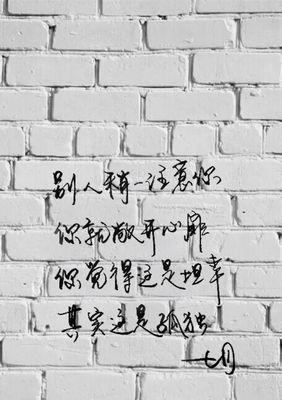 别人稍一注意你
你就敞开心扉
你觉得这是坦率
其实这是孤独
—七月